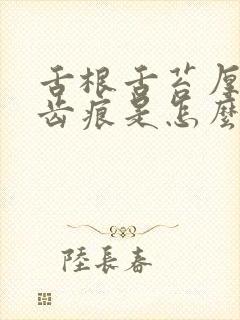 舌根舌苔厚
齿痕是怎麽
陸長春